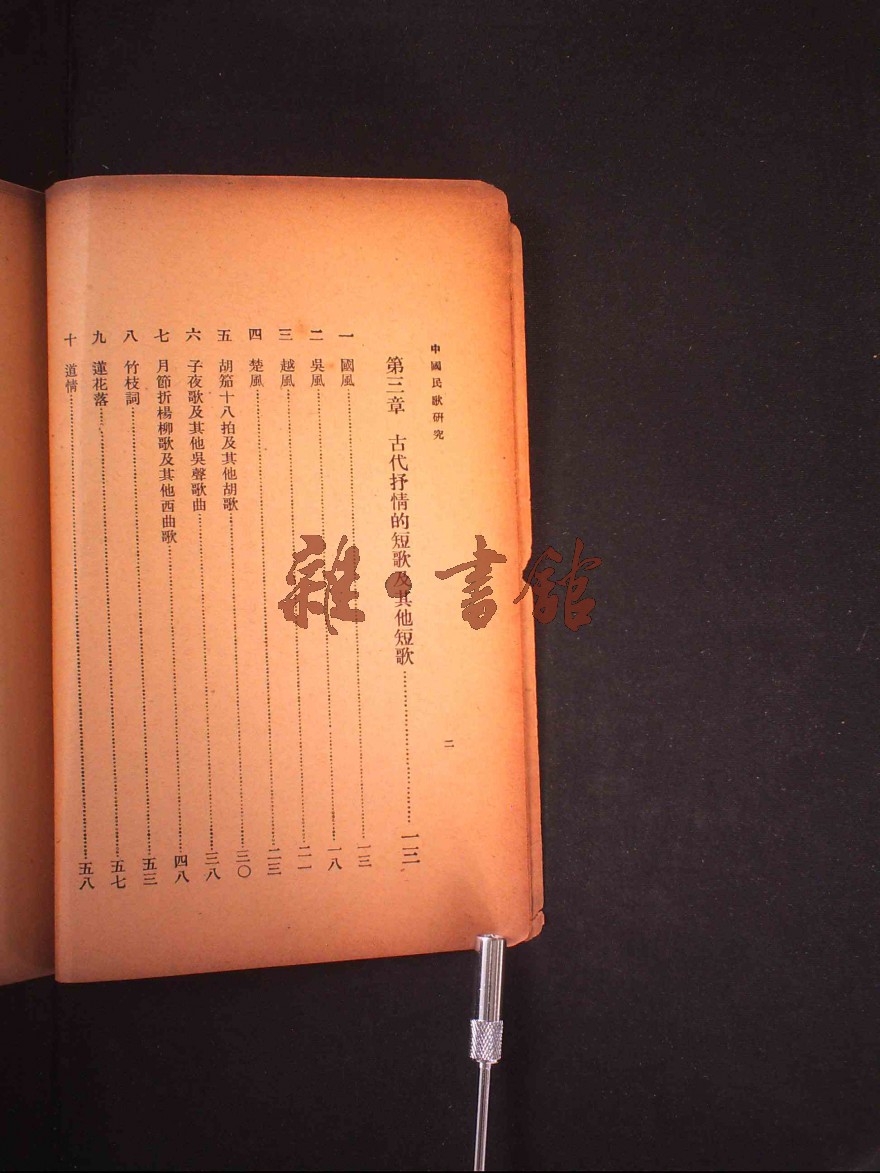 中國民歌研究
二
第三章 古代抒情的短歌及其他短歌……一三
一 國風……一三
二 吳風……一八
三 越風……二一
四 楚風……二三
五 胡笳十八拍及其他胡歌……三〇
六 子夜歌及其他吳聲歌曲……三八
七 月節折楊柳歌及其他西曲歌……四八
八 竹枝詞……五三
九 蓮花落……五七
十 道情……五八
雜·書館